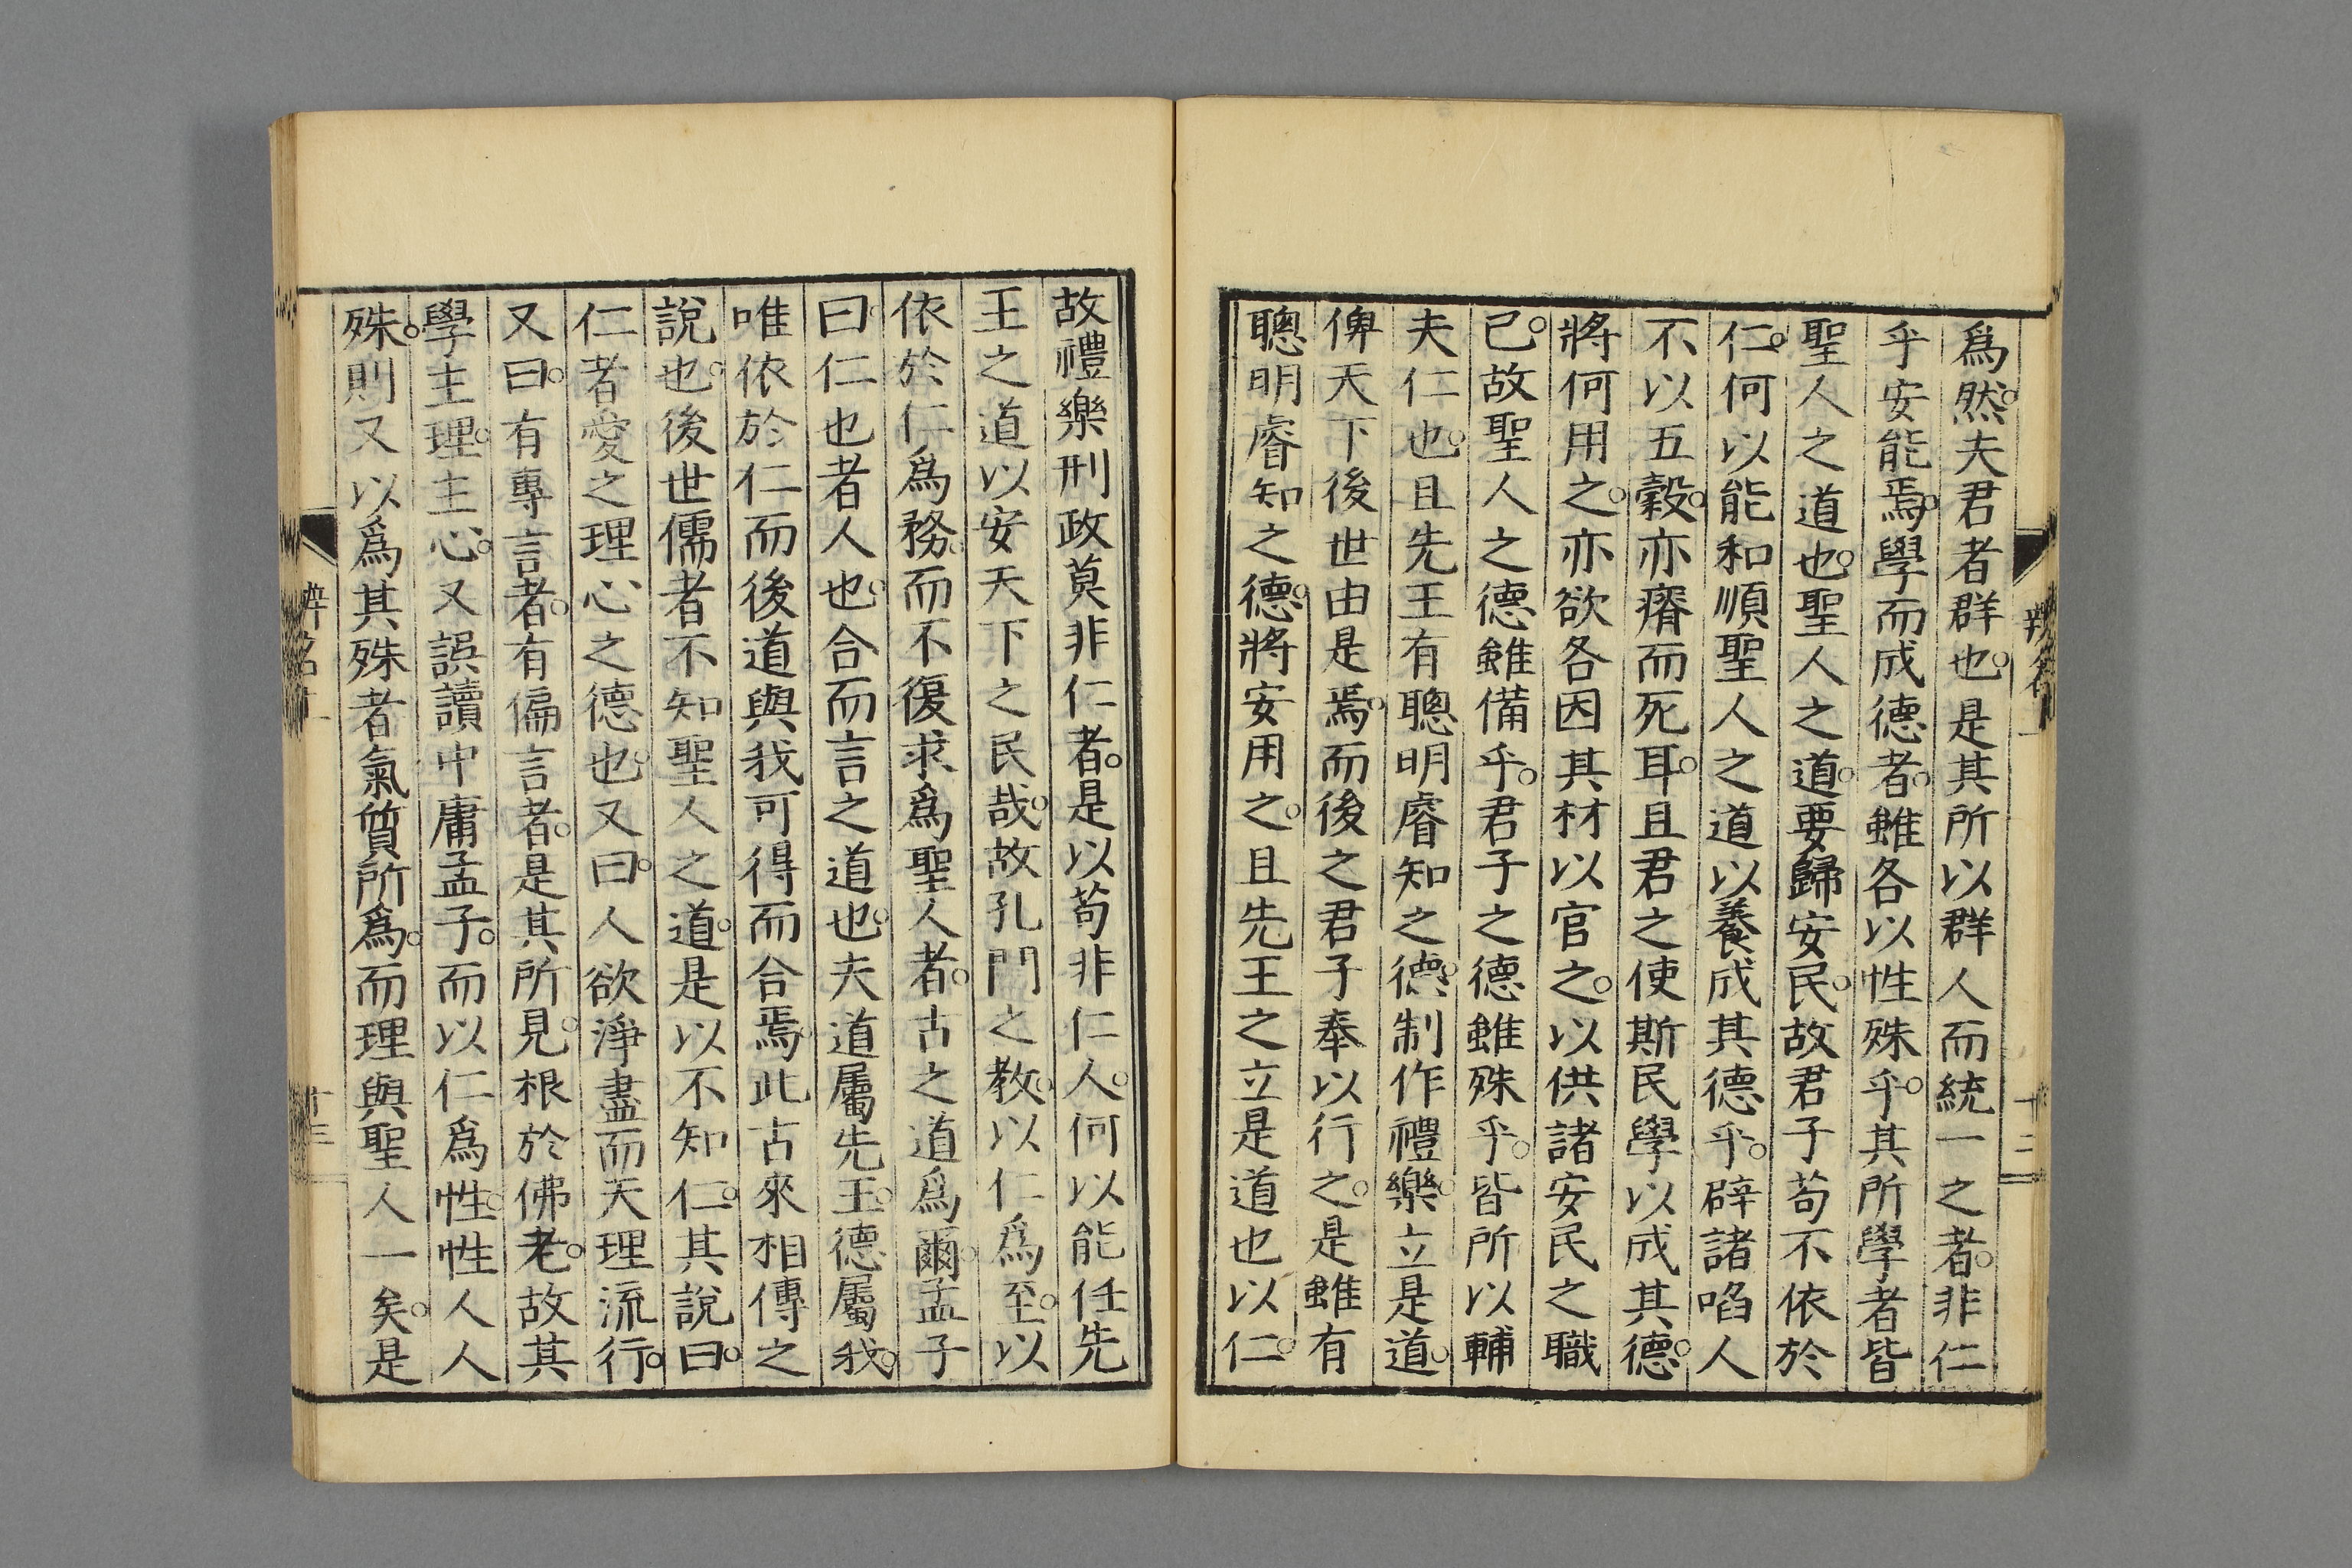 爲然。夫君者群也。是其所以群人而統一之者。非仁
乎安能焉。學而成德者。雖各以性殊乎。其所學者皆
聖人之道也。聖人之道。要歸安民。故君子苟不依於
仁。何以能和順聖人之道以養成其德乎。辟諸啗人
不以五穀。亦瘠而死耳。且君之使斯民學以成其德。
將何用之。亦欲各因其材以官之。以供諸安民之職
已。故聖人之德雖備乎。君子之德雖殊乎。皆所以輔
夫仁也。且先王有聰明睿知之德。制作禮樂。立是道。
俾天下後世由是焉。而後之君子奉以行之。是雖有
聰明睿知之德。將安用之。且先王之立是道也以仁。
故禮樂刑政莫非仁者。是以苟非仁人。何以能任先
王之道以安天下之民哉。故孔門之教。以仁爲至。以
依於仁爲務。而不復求爲聖人者。古之道爲爾。孟子
曰。仁也者人也。合而言之道也。夫道屬先王。德屬我。
唯依於仁而後道與我可得而合焉。此古來相傳之
說也。後世儒者不知聖人之道。是以不知仁。其說曰。
仁者愛之理心之德也。又曰。人欲淨盡而天理流行。
又曰。有專言者。有偏言者。是其所見。根於佛老。故其
學主理。主心。又誤讀中庸孟子。而以仁爲性。性人人
殊。則又以爲其殊者氣質所爲。而理與聖人一矣。是
辨名上
十三